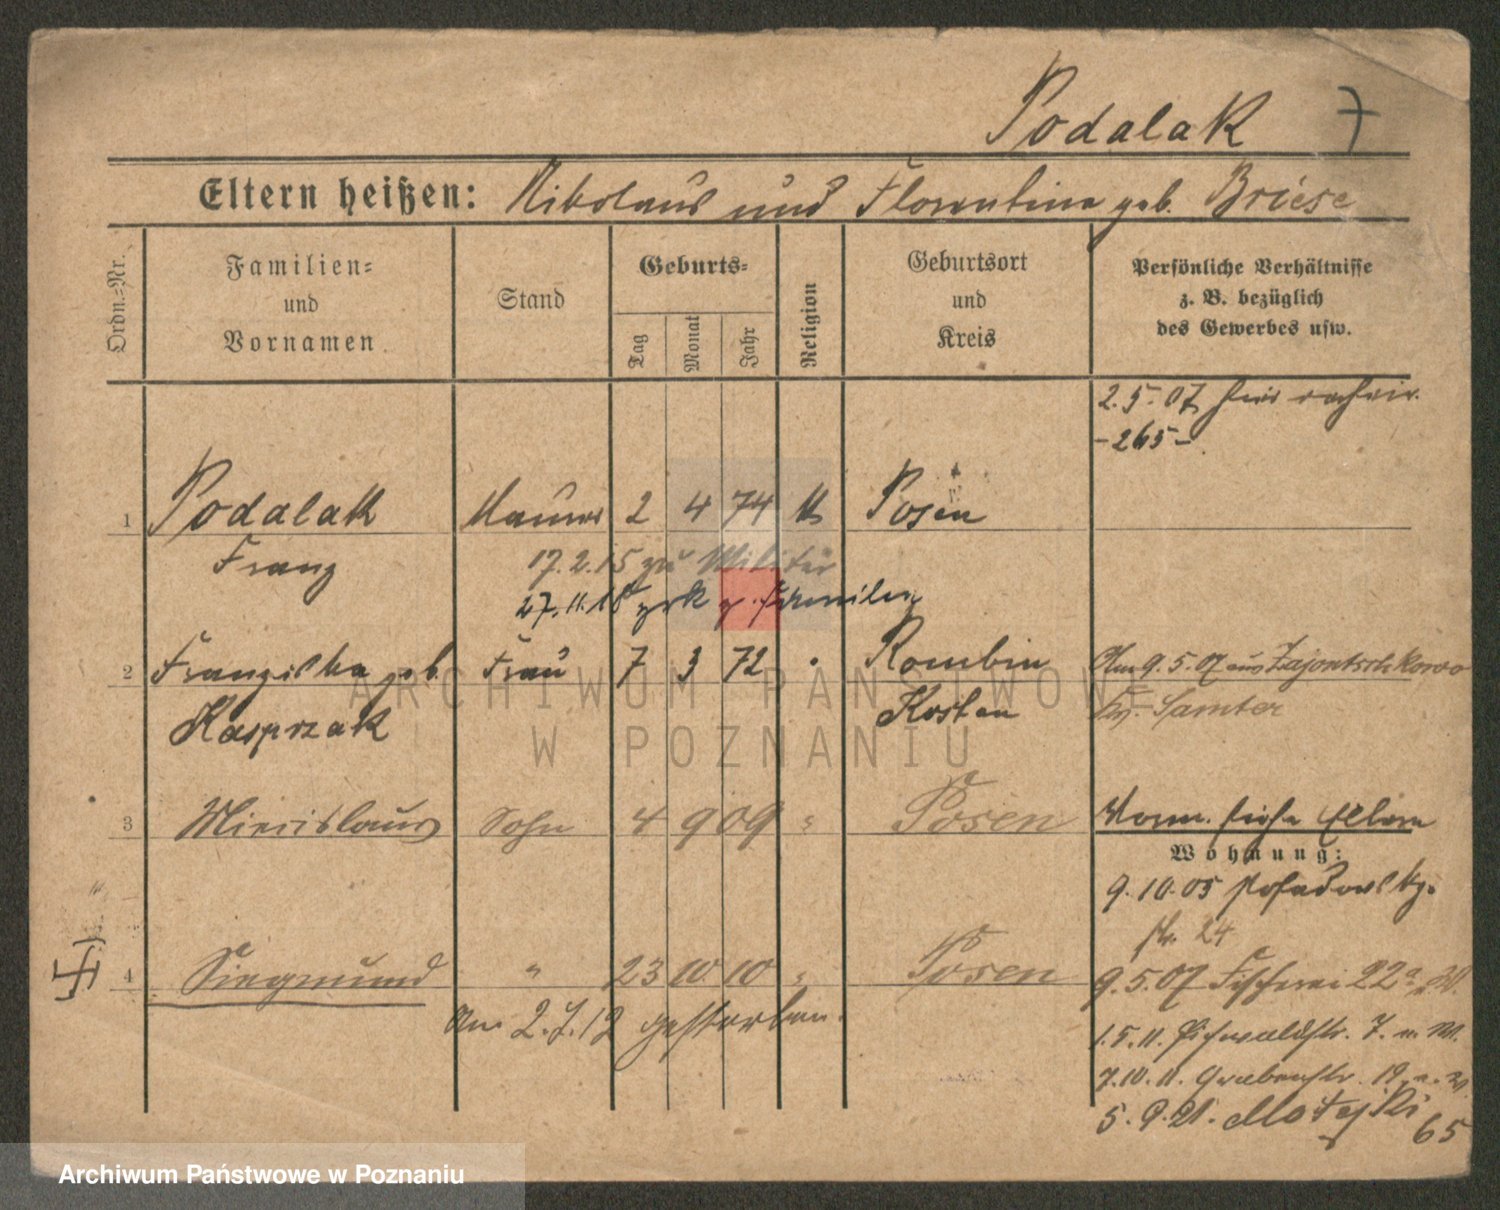 Podalak 7
Eltern heißen: Nikolaus und Florentine geb. Briese
Ordn.-Nr.
Familien-
und
Vornamen
Stand
Geburts-
Tag
Monat
Jahr
Religion
Geburtsort
und
Kreis
Persönliche Verhältnisse
z. B. bezüglich
des Gewerbes usw.
2.5.07 hier
-265-
1 Podalak Maurer 2 4 74 k Posen
Franz
17.2.15 zu Militär
27.11.18 zrk z. Familie
2 Franziska geb. Frau 7 3 72 Rombin
Am 9.5.07 aus Zajontschkowo
Kasprzak Kosten
Kr. Samter
ARCHIWUM PAŃSTWOWE
W POZNANIU
3 Miecislaus Sohn 4 9 09 " Posen
Vorm. siehe Eltern
Wohnung:
9.10.05 Posadowsky-
str. 24
4 Siegmund " 23 10 10 " Posen
9.5.07 Fischerei 22a
Am 2.7.12 gestorben.
1.5.11. Eichwaldstr. 7.
7.10.11. Grabenstr. 19
5.9.21. Matejki 65
Archiwum Państwowe w Poznaniu